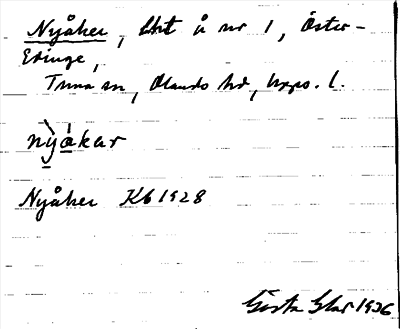 Nyåker, Lht å nr 1, Öster-
Edinge,
Tuna sn, Olands hd, Upps. l.
nỳákar
Nyåker Kb 1928
Gösta Glar 1936